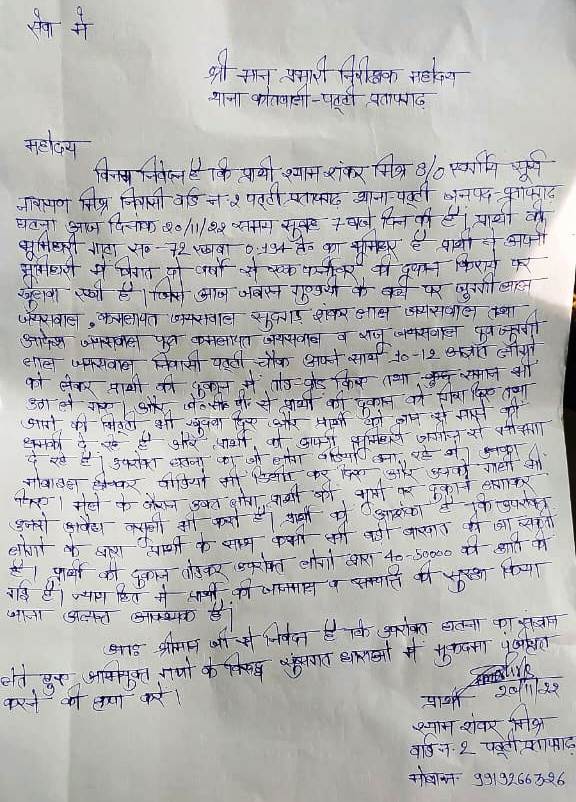 सेवा में
श्री मान प्रभारी निरीक्षक महोदय
थाना कोतवाली-पट्टी प्रतापगढ़
महोदय
विनम्र निवेदन है कि प्रार्थी श्याम शंकर मिश्र S/O स्वर्गीय सूर्य
नारायण मिश्र निवासी वार्ड न. 2 पट्टी प्रतापगढ़ थाना-पट्टी जनपद-प्रतापगढ़
घटना आज दिनांक 20/11/22 समय सुबह 7 बजे दिन की है। प्रार्थी की
भूमिधरी गाटा सं०-72 रकबा 0.194 हे० का भूमिधर है प्रार्थी ने अपनी
भूमिधरी में विगत दो वर्षों से एक फर्नीचर की दुकान किराये पर
खुलवा रखी है। जिसे आज जबरन गुण्डयी के बल पर जुग्गी लाल
जयसवाल, कमलापत जयसवाल सुतगड़ शंकर लाल जयसवाल तथा
जयसवाल पुत्र कमलापत जयसवाल व राजू जयसवाल पुत्र जुग्गी
लाल जयसवाल निवासी पट्टी चौक अपने साथ 10-12 अज्ञात लोगों
को लेकर प्रार्थी की दुकान में तोड़-फोड़ किए तथा सामान भी
उठा ले गए। और जे०सी०बी० से प्रार्थी की दुकान को गिरा दिए तथा
आगे की मिट्टी भी खुदवा दिए और प्रार्थी को जान से मारने की
धमकी दे रहे हैं और प्रार्थी को अपनी भूमिधरी जमीन से
दे रहे हैं। उपरोक्त घटना का जो लोग वीडियो बना रहे थे उनका
मोबाइल छीनकर वीडियो भी डिलीट कर दिए और उनको गाली भी
दिए। मेले के दौरान उक्त लोग प्रार्थी की भूमि पर दुकान लगाकर
उनसे अवैध वसूली भी करते हैं। प्रार्थी को आशंका है कि उपरोक्त
लोगों के द्वारा प्रार्थी के साथ कभी भी बड़ी वारदात की जा सकती
है। प्रार्थी की दुकान तोड़कर उपरोक्त लोगों द्वारा 40-50000 की क्षति की
गई है। न्याय हित में प्रार्थी की जानमाल व सम्पत्ति की सुरक्षा किया
जाना अत्यन्त आवश्यक है।
अतः श्रीमान जी से निवेदन है कि उपरोक्त घटना का संज्ञान
लेते हुए अभियुक्त गणों के विरुद्ध सुसंगत धाराओं में मुकदमा पंजीकृत
करने की कृपा करें।
प्रार्थी 20/11/22
श्याम शंकर मिश्र
वार्ड न. 2 पट्टी प्रतापगढ़
मोबाइल- 9919266326